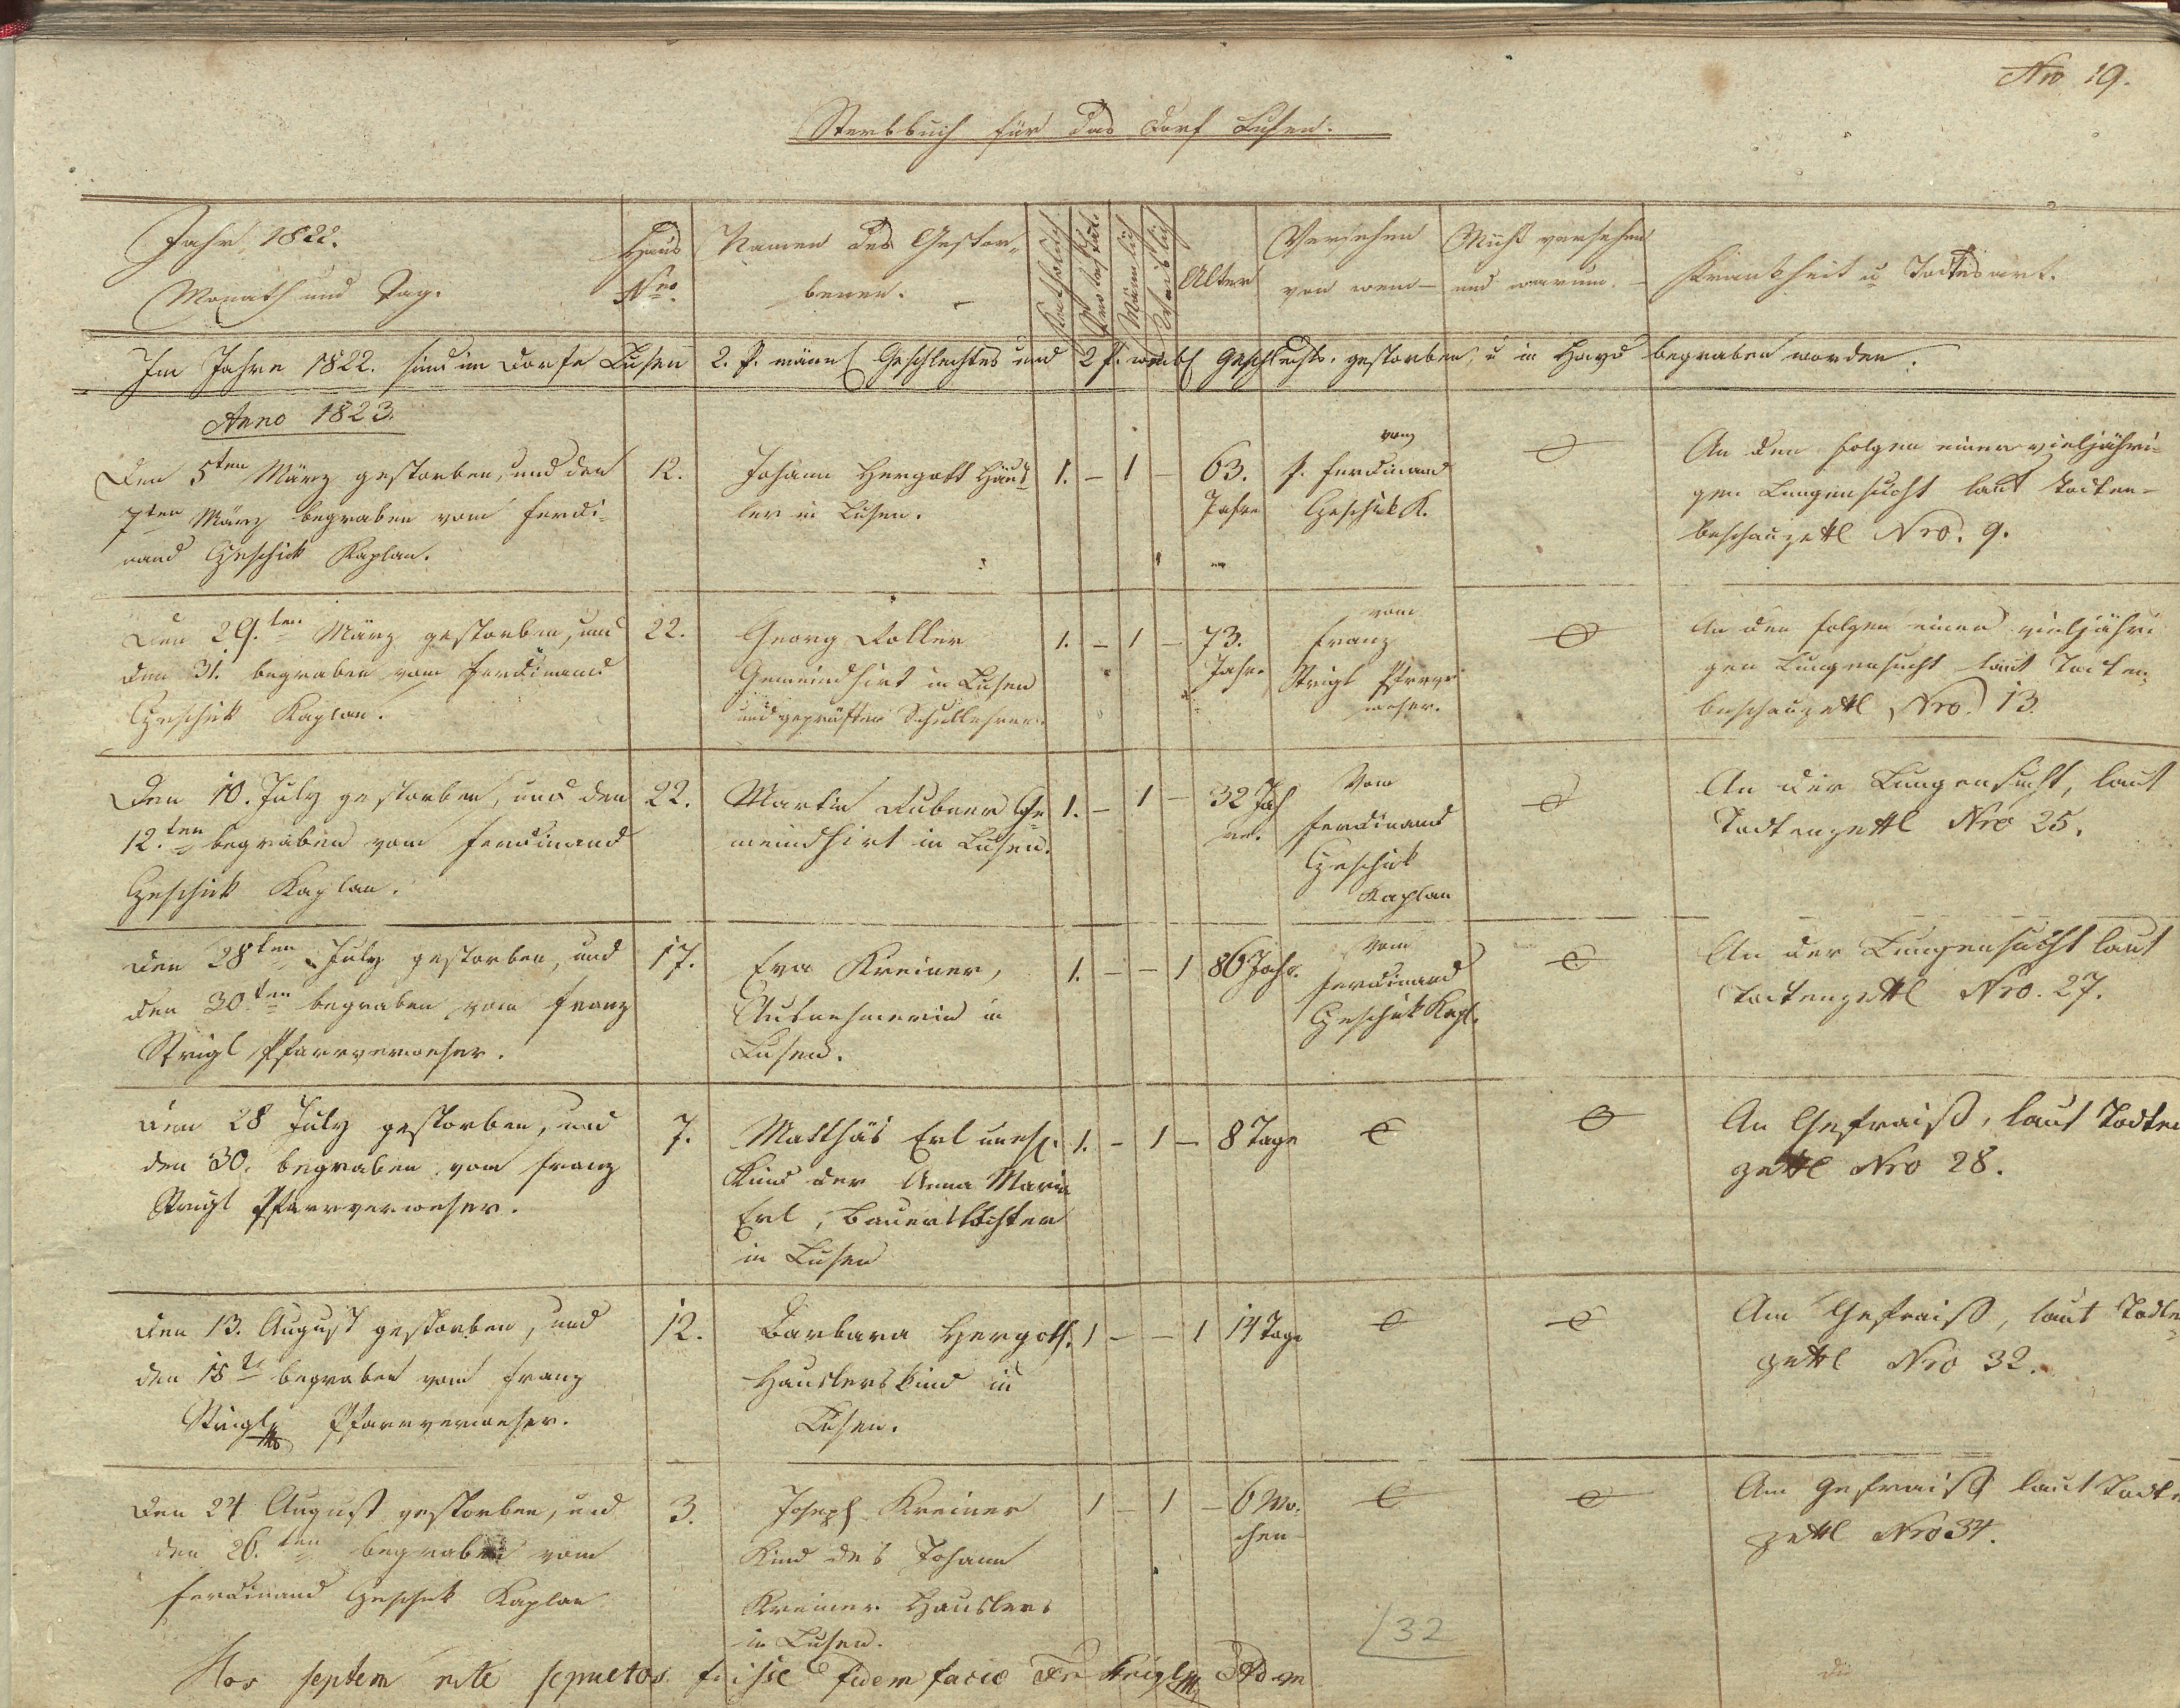 Nro 19.
Sterbbuch für das Dorf Lusen.
Jahr 1822.
Monath und Tag.
Haus
Nro.
Namen des Gestor-
benen.
Katholisch
Protestant.
Männlich
Weiblich
Alter
Versehen
von wem
Nicht versehen
und warum.
Krankheit u Todtesart.
Im Jahre 1822. sind im Dorfe Lusen 2. P. männl Geschlechtes und 2 P. weibl Geschlechts. gestorben, u in Hayd begraben worden.
Anno 1823.
Den 5ten März gestorben, und den
7ten März begraben vom Ferdi-
nand Geschick Kaplan.
12.
Johann Hergott Häus-
ler in Lusen.
1. - 1 -
63.
Jahre
vom
P. Ferdinand
Geschick K.
An den Folgen einer vieljähri-
gen Lungensucht laut Todten-
beschauzettl Nro. 9.
Den 29.ten März gestorben, und
den 31. begraben vom Ferdinand
Geschick Kaplan.
22.
Georg Zoller
Gemeindhirt in Lusen
und geprüfter Schullehrer.
1. - 1 -
73.
Jahre
vom
Franz
Strigl Pfarrver
weser.
An den Folgen einer vieljähri
gen Lungensucht laut Todten-
beschauzettl Nro. 13.
Den 10. July gestorben, und den
12.ten begraben vom Ferdinand
Geschick Kaplan.
22.
Martin Dubner Ge
meindhirt in Lusen.
1. - 1 -
32 Jah
re.
Vom
Ferdinand
Geschick
Kaplan
An der Lungensucht, laut
Todtenzettl Nro 25.
Den 28ten July gestorben, und
den 30ten begraben vom Franz
Strigl Pfarrverweser.
17.
Eva Kreiner,
Ausnehmerin in
Lusen.
1. - - 1
86 Jahr.
Vom
Ferdinand
Geschick Kapl.
An der Lungensucht laut
Todtenzettl Nro. 27.
Den 28 July gestorben, und
den 30. begraben vom Franz
Strigl Pfarrverweser.
7.
Matthäs Erl unehl.
Kind der Anna Maria
Erl, Bauerstochter
in Lusen
1. - 1 -
8 Tage
An Gefraiß, laut Todten
zettl Nro 28.
Den 13. August gestorben, und
den 15te begraben vom Franz
Strigl Pfarrverweser.
12.
Barbara Hergott.
Hauslerskind in
Lusen.
1 - - 1
14 Tage
Am Gefraiß, laut Todten
zettl Nro 32.
Den 24 August gestorben, und
den 26.ten begraben vom
Ferdinand Geschick Kaplan
3.
Joseph Kreiner
Kind des Johann
Kreiner Hauslers
in Lusen.
1 - 1 -
6 Wo-
chen
Am Gefraiß laut Todten
zettl Nro 34.
32
Hos septem rite sepultos fuisse fidem facio Fr Strigl